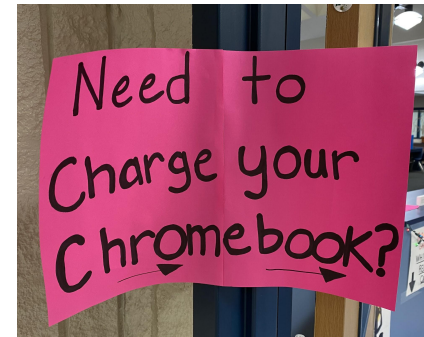 Need to
Charge your
Chromebook?